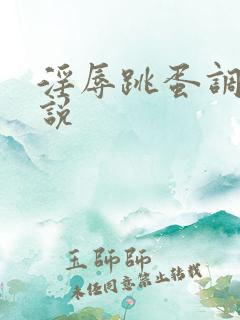 淫辱跳蛋調
說
王師師
未任同意禁止转载